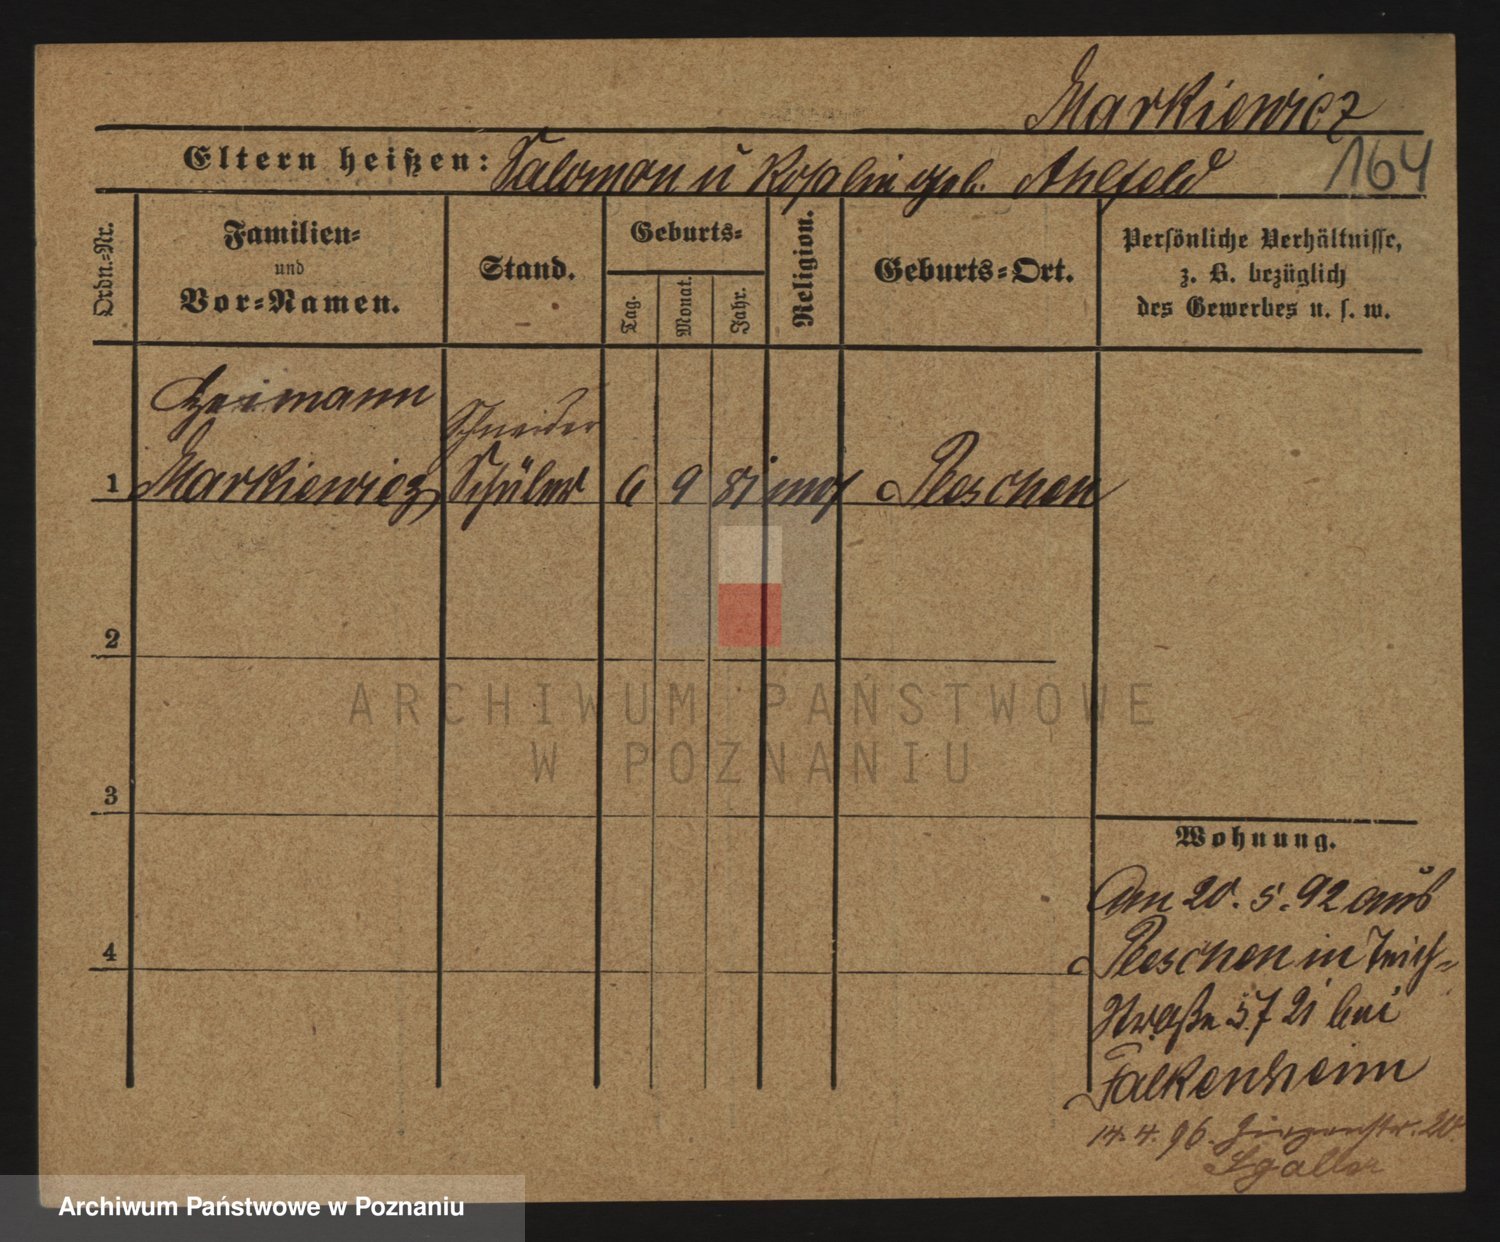 Markiewicz
Eltern heißen: Salomon u geb. Ahlfeld
164
Ordn.-Nr.
Familien-
und
Vor-Namen.
Stand.
Geburts-
Tag.
Monat.
Jahr.
Religion.
Geburts-Ort.
Persönliche Verhältnisse,
z. B. bezüglich
des Gewerbes u. s. w.
Heimann
Schneider
1 Markiewicz Schüler 6 9 81 mos Pleschen
2
3
4
Wohnung.
Am 20. 5. 92 aus
Pleschen in Teich-
straße 5 bei
Falkenheim
14. 4. 96. 20.
Sgaller
ARCHIWUM PAŃSTWOWE
W POZNANIU
Archiwum Państwowe w Poznaniu